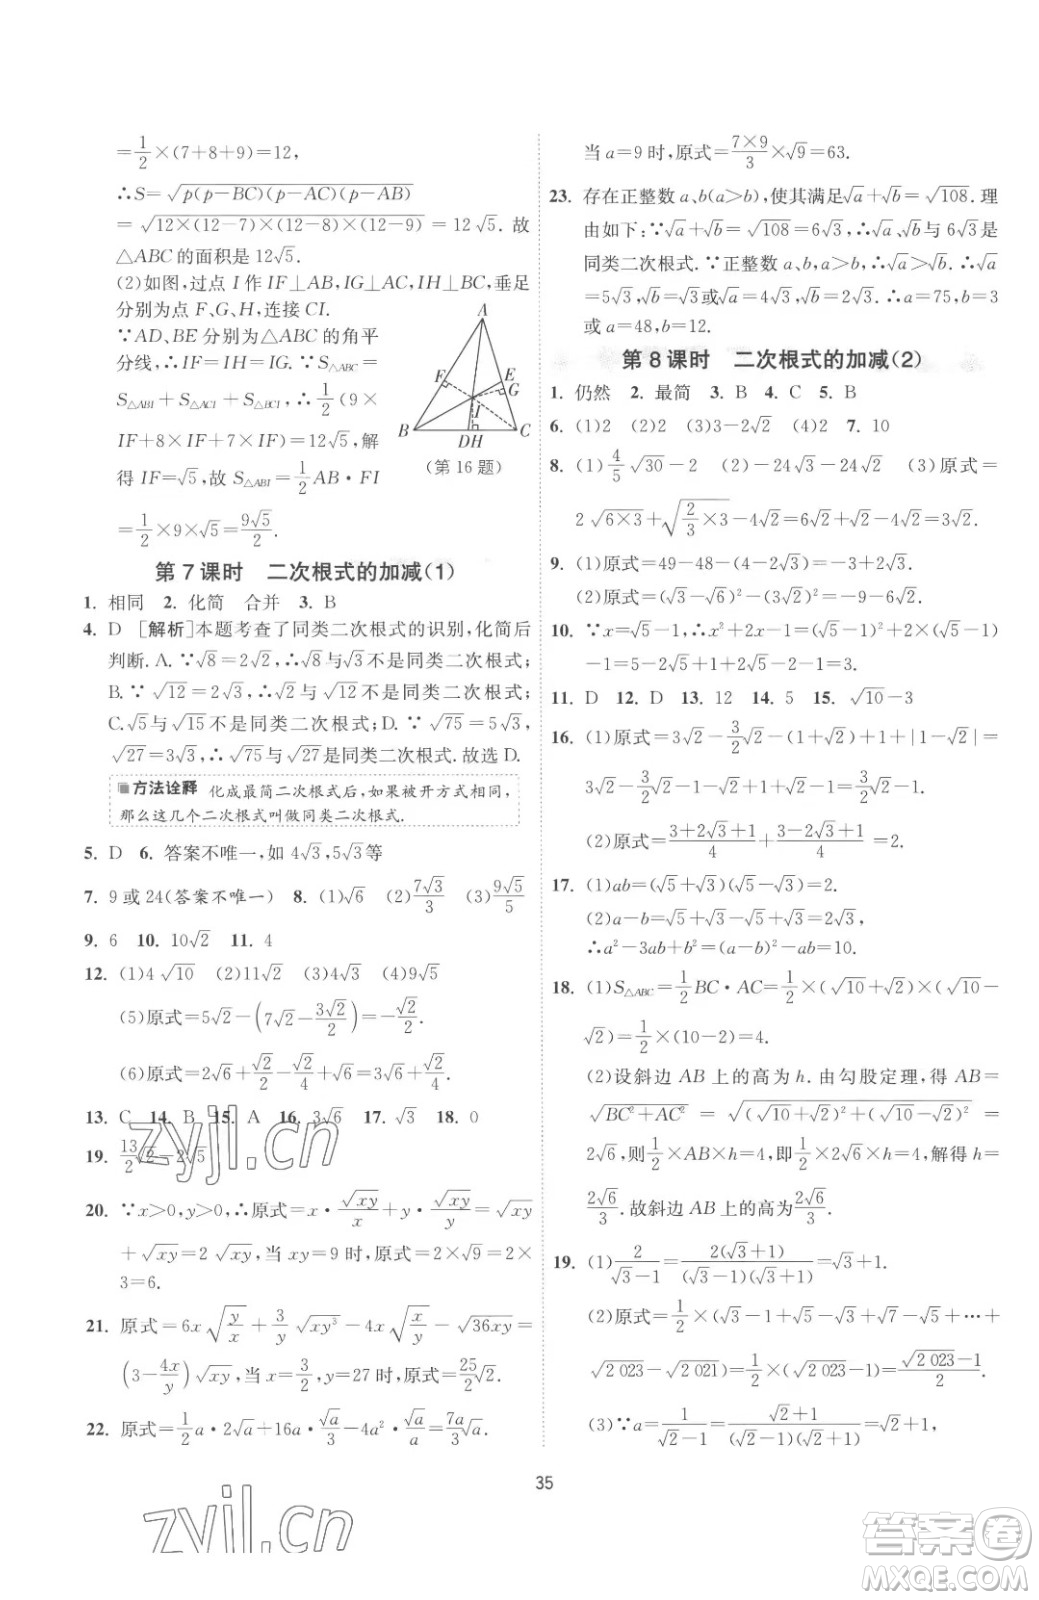 =1/2×(7+8+9)=12,
∴S=√(p(p-BC)(p-AC)(p-AB))
=√(12×(12-7)×(12-8)×(12-9))=12√5. 故
△ABC的面积是12√5.
(2)如图,过点I作IF⊥AB,IG⊥AC,IH⊥BC,垂足
分别为点F、G、H,连接CI.
∵AD、BE分别为△ABC的角平
分线,∴IF=IH=IG. ∵S△ABC=
S△ABI+S△ACI+S△BCI,∴1/2(9×
IF+8×IF+7×IF)=12√5,解
得IF=√5,故S△ABI=1/2AB·FI
=1/2×9×√5=9√5/2.
A
F
E
G
I
B
DH
C
(第16题)
第7课时 二次根式的加减(1)
1. 相同 2. 化简 合并 3. B
4. D [解析]本题考查了同类二次根式的识别,化简后
判断.A.∵√8=2√2,∴√8与√3不是同类二次根式;
B.∵√12=2√3,∴√2与√12不是同类二次根式;
C.√5与√15不是同类二次根式;D.∵√75=5√3,
√27=3√3,∴√75与√27是同类二次根式.故选D.
方法诠释 化成最简二次根式后,如果被开方式相同,
那么这几个二次根式叫做同类二次根式.
5. D 6. 答案不唯一,如4√3,5√3等
7. 9或24(答案不唯一) 8. (1)√6 (2)7√3/3 (3)9√5/5
9. 6 10. 10√2 11. 4
12. (1)4√10 (2)11√2 (3)4√3 (4)9√5
(5)原式=5√2-(7√2-3√2/2)=-√2/2.
(6)原式=2√6+√2/2-√2/4+√6=3√6+√2/4.
13. C 14. B 15. A 16. 3√6 17. √3 18. 0
19. 13/2√2-2√5
20. ∵x>0,y>0,∴原式=x·√xy/x+y·√xy/y=√xy
+√xy=2√xy,当xy=9时,原式=2×√9=2×
3=6.
21. 原式=6x√(y/x)+3/y√(xy³)-4x√(y/x)-√(36xy)=
(3-4x/y)√xy,当x=3/2,y=27时,原式=25/2√2.
22. 原式=1/2a·2√a+16a·√a/3-4a²·√a/a=7a/3√a.
当a=9时,原式=7×9/3×√9=63.
23. 存在正整数a、b(a>b),使其满足√a+√b=√108.理
由如下:∵√a+√b=√108=6√3,∴√a、√b与6√3是
同类二次根式.∵正整数a、b,a>b,∴√a>√b.∴√a
=5√3,√b=√3或√a=4√3,√b=2√3.∴a=75,b=3
或a=48,b=12.
第8课时 二次根式的加减(2)
1. 仍然 2. 最简 3. B 4. C 5. B
6. (1)2 (2)2 (3)3-2√2 (4)2 7. 10
8. (1)4/5√30-2 (2)-24√3-24√2 (3)原式=
2√(6×3)+√(2/3×3)-4√2=6√2+√2-4√2=3√2.
9. (1)原式=49-48-(4-4√3+3)=4√3-7.
(2)原式=(√2)²-(2√3)²=2-12=-10.
10. ∵x=√5-1,∴x²+2x-1=(√5-1)²+2×(√5-1)
-1=5-2√5+1+2√5-2-1=3.
11. D 12. D 13. 12 14. 5 15. √10-3
16. (1)原式=3√2-3/2√2-(1+√2)+1+|1-√2|=
3√2-3/2√2-1-√2+1+√2-1=3/2√2-1.
(2)原式=(3+2√3+1)/4+(3-2√3+1)/4=2.
17. (1)ab=(√5+√3)(√5-√3)=2.
(2)a-b=√5+√3-√5+√3=2√3,
∴a²-3ab+b²=(a-b)²-ab=10.
18. (1)S△ABC=1/2BC·AC=1/2×(√10+√2)×(√10-
√2)=1/2×(10-2)=4.
(2)设斜边AB上的高为h.由勾股定理,得AB=
√(BC²+AC²)=√((√10+√2)²+(√10-√2)²)=
2√6,则1/2×AB×h=4,即1/2×2√6×h=4,解得h=
2√6/3.故斜边AB上的高为2√6/3.
19. (1)2/(√3-1)=2(√3+1)/((√3-1)(√3+1))=√3+1.
(2)原式=1/2×(√3-1+√5-√3+√7-√5+…+
√2 023-√2 021)=1/2×(√2 023-1)=(√2 023-1)/2.
(3)∵a=1/(√2-1)=(√2+1)/((√2-1)(√2+1))=√2+1,
35
zyjl.cn
zyjl.cn
答案圈
MXQE.COM